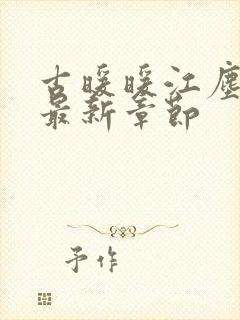 古暖暖江尘
最新章节
予作